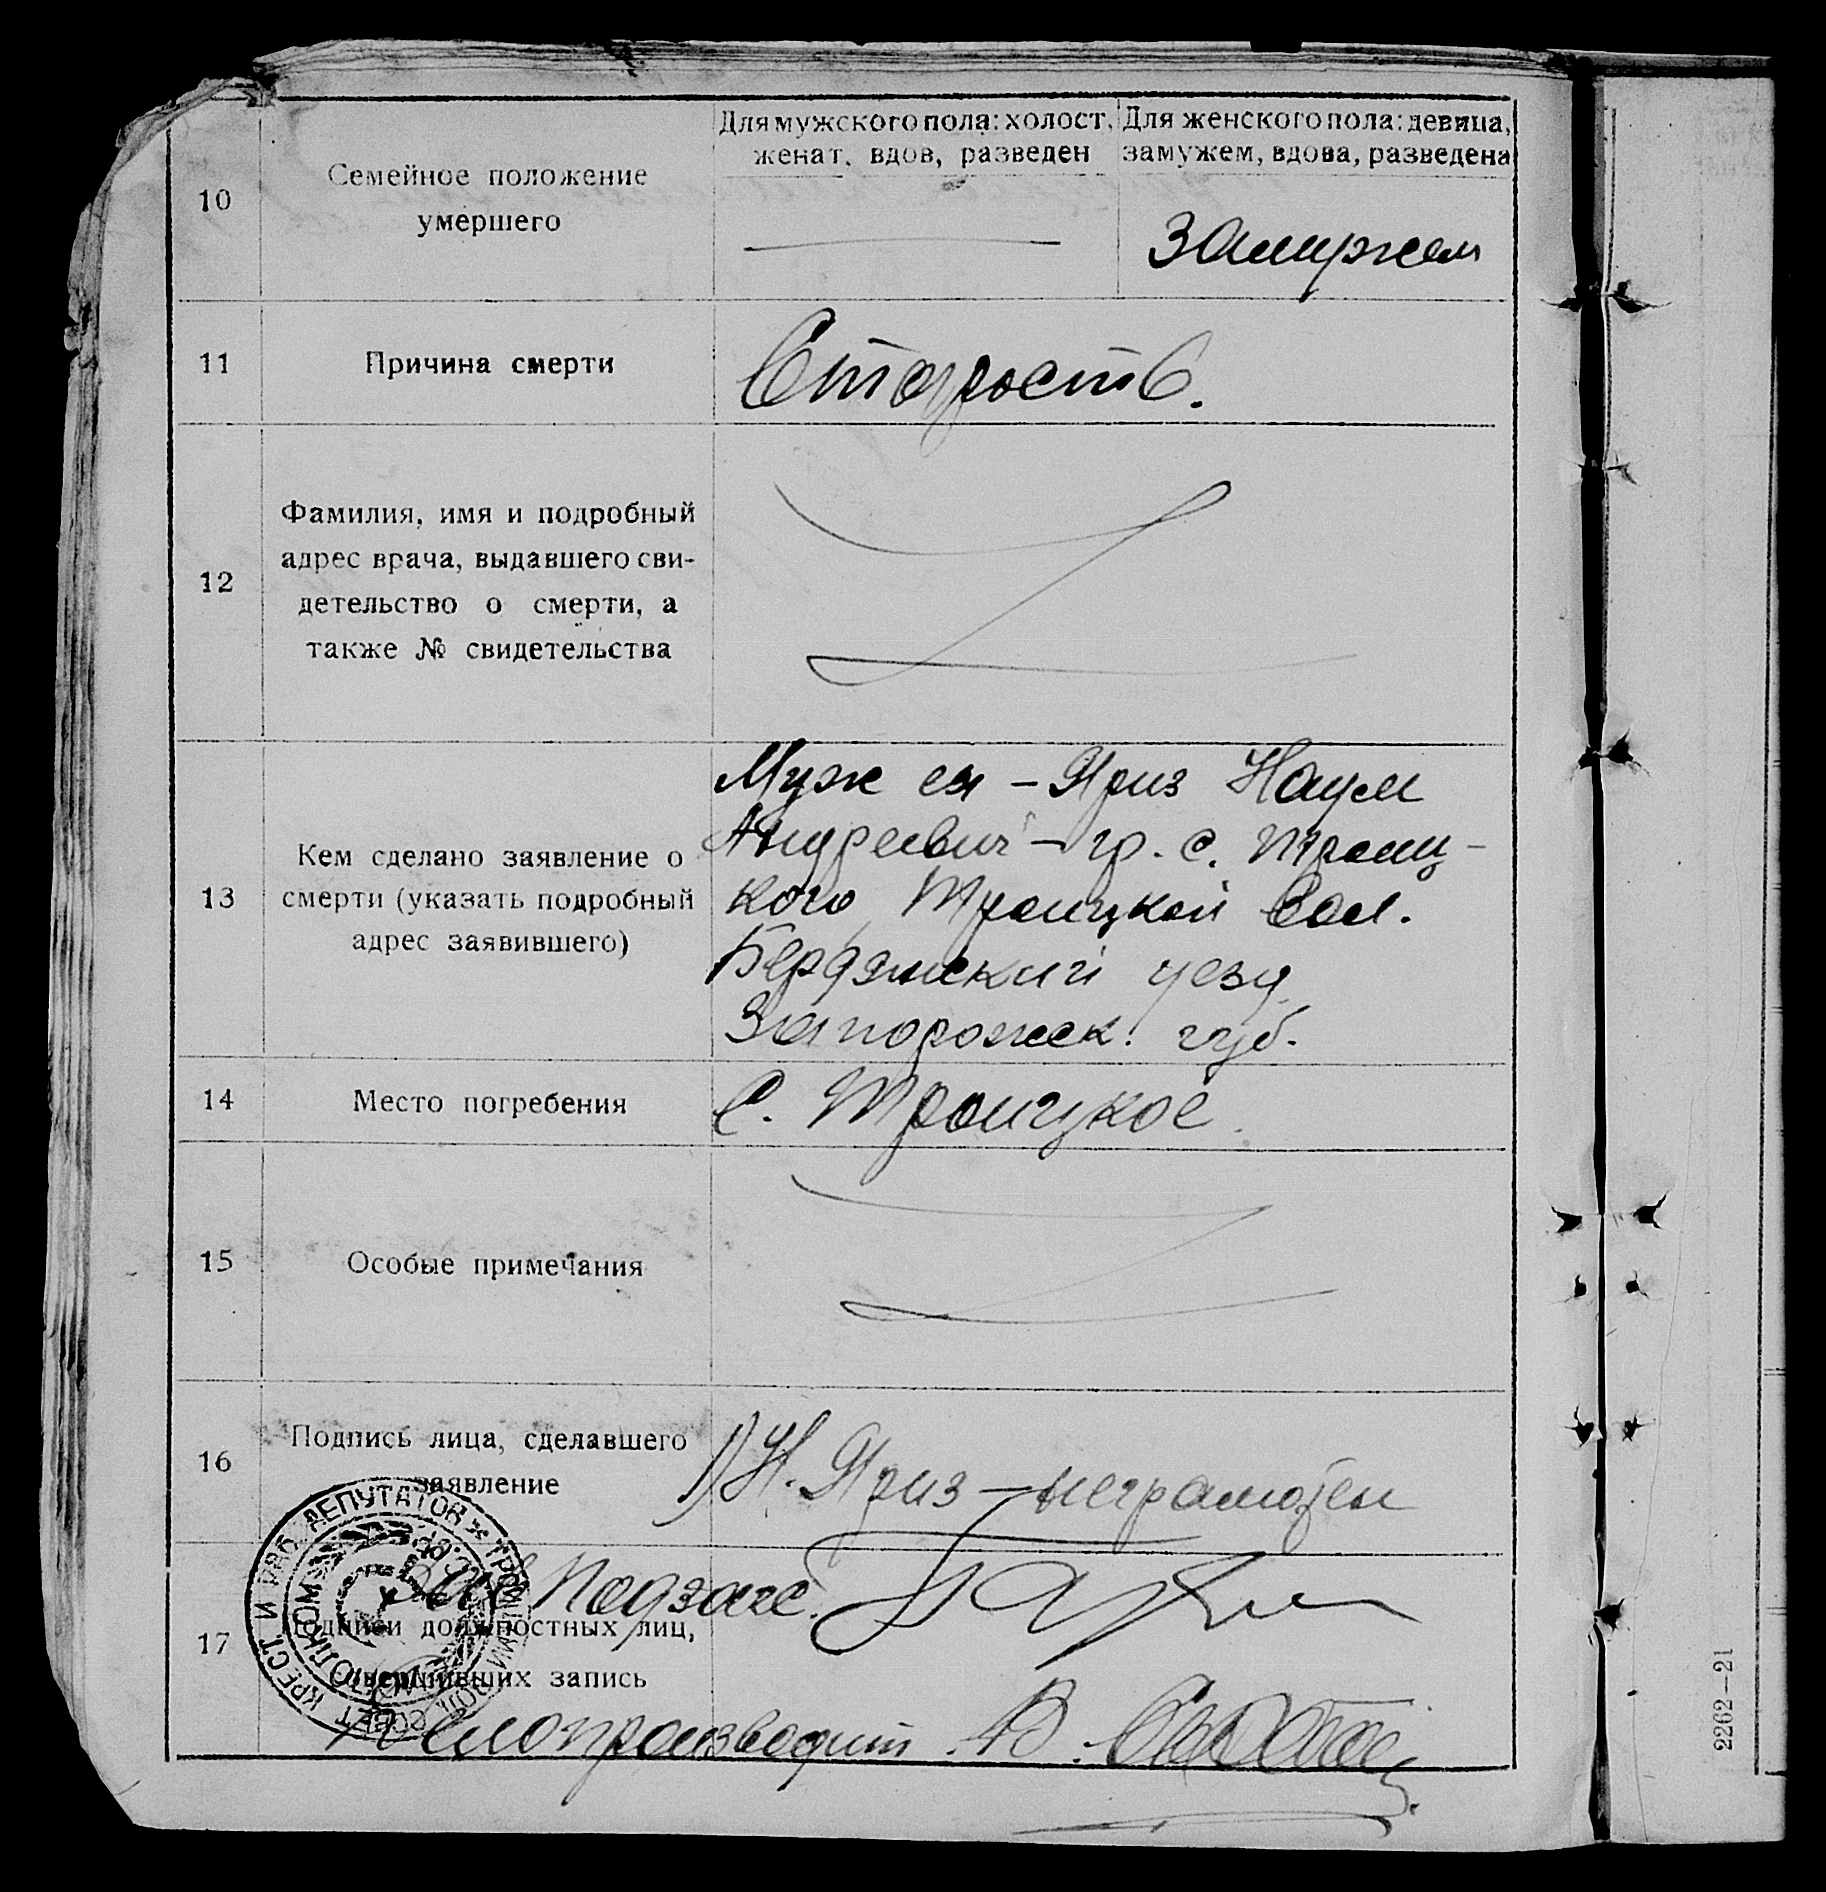 10
Семейное положение
умершего
Для мужского пола: холост,
женат, вдов, разведен
Для женского пола: девица,
замужем, вдова, разведена
Замужем
11
Причина смерти
Старость.
12
Фамилия, имя и подробный
адрес врача, выдавшего сви-
детельство о смерти, а
также № свидетельства
13
Кем сделано заявление о
смерти (указать подробный
адрес заявившего)
Муж ея - Яриз Наум
Андреевич - гр. с. Троиц-
кого, Троицкой вол.
Бердянский уезд
Запорожск. губ.
14
Место погребения
С. Троицкое.
15
Особые примечания
16
Подпись лица, сделавшего
заявление
1) Н. Яриз - неграмотен
17
Зав. Подзагс.
Подписи должностных лиц,
совершивших запись
Делопроизводит. В.
КРЕСТ. И РАБ. ДЕПУТАТОВ
2262—21